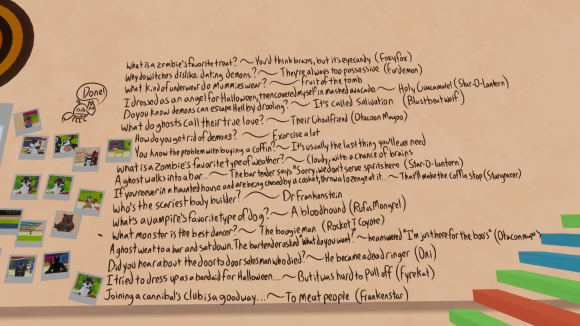 Done!
What is a zombie's favorite treat? ~ You'd think brains, but it's eye candy (Foxyfox)
Why do witches dislike dating demons? ~ They're always too possessive (Furdemon)
What kind of underwear do Mummies wear? ~ Fruit of the tomb
I dressed as an angel for Halloween, then covered myself in mashed avacado. ~ Holy Guacamole! (Star-O-Lantern)
Do you know demons can escape Hell by drooling? ~ It's called Salivation (Blustboatwolf)
What do ghosts call their true love? ~ Their Ghoulfriend (Otacoon Magoo)
How do you get rid of demons? ~ Exorcise a lot
You know the problem with buying a coffin? ~ It's usually the last thing you'll ever need
What is a zombie's favorite type of weather? ~ Cloudy, with a chance of brains
A ghost walks into a bar.. ~ The bartender says "Sorry, we don't serve spirits here (Star-O-lantern)
If you're ever in a haunted house and are being chased by a casket, throw a lozenge at it... ~ That'll make the coffin stop (Stargazer)
Who's the scariest body builder? ~ Dr Frankenstein
What's a vampire's favorite type of dog? ~ A bloodhound (Rufus Mongrel)
What monster is the best dancer? ~ The boogieman (Rocket T Coyote)
A ghost went to a bar and sat down. The bartender asked "What do you want? ~ he answered "I'm just here for the boo's"
Did you hear about the door to door salesman who died? ~ He became a dead ringer (Oni)
I tried to dress up as a bandaid for Halloween... ~ But it was hard to Pull off (Fyrekat)
Joining a cannibal's club is a good way... ~ To meat people (Frankenstar)